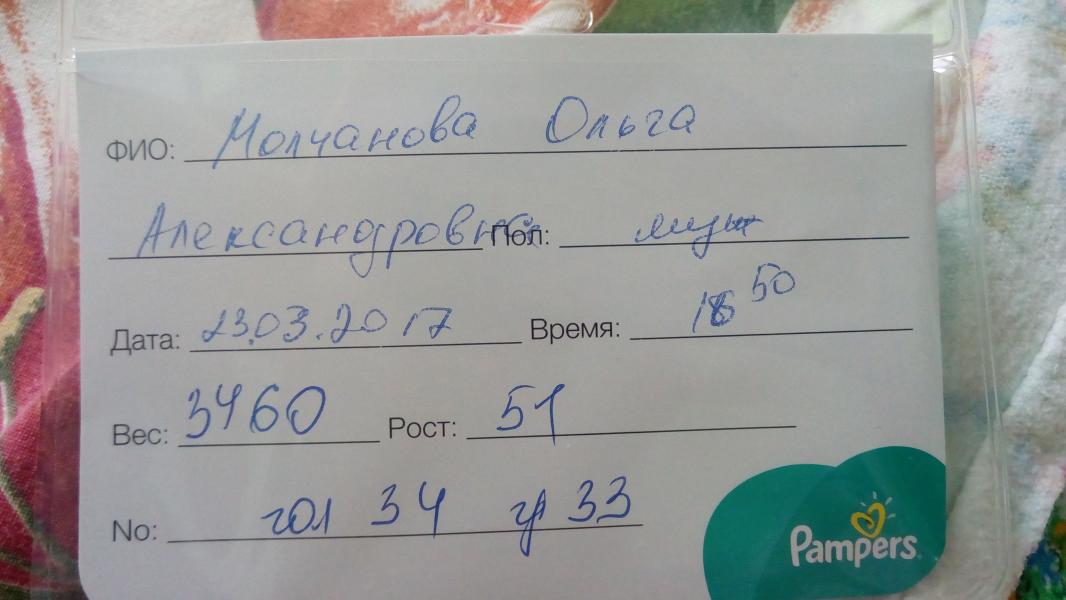 ФИО: Молчанова Ольга
Александровна Пол: муж
Дата: 23.03.2017 Время: 50
Вес: 3460 Рост: 51
No: гол 34 гр 33
Pampers